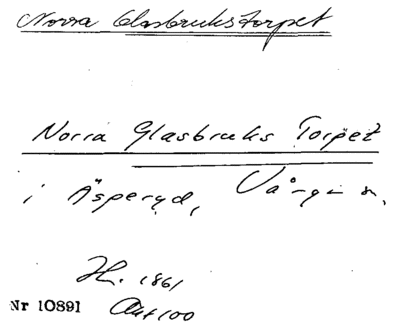 Norra Glasbrukstorpet
Norra Glasbruks Torpet
i Äsperyd, Vårgå s.
Hl. 1861
Nr 10891 Akt 100